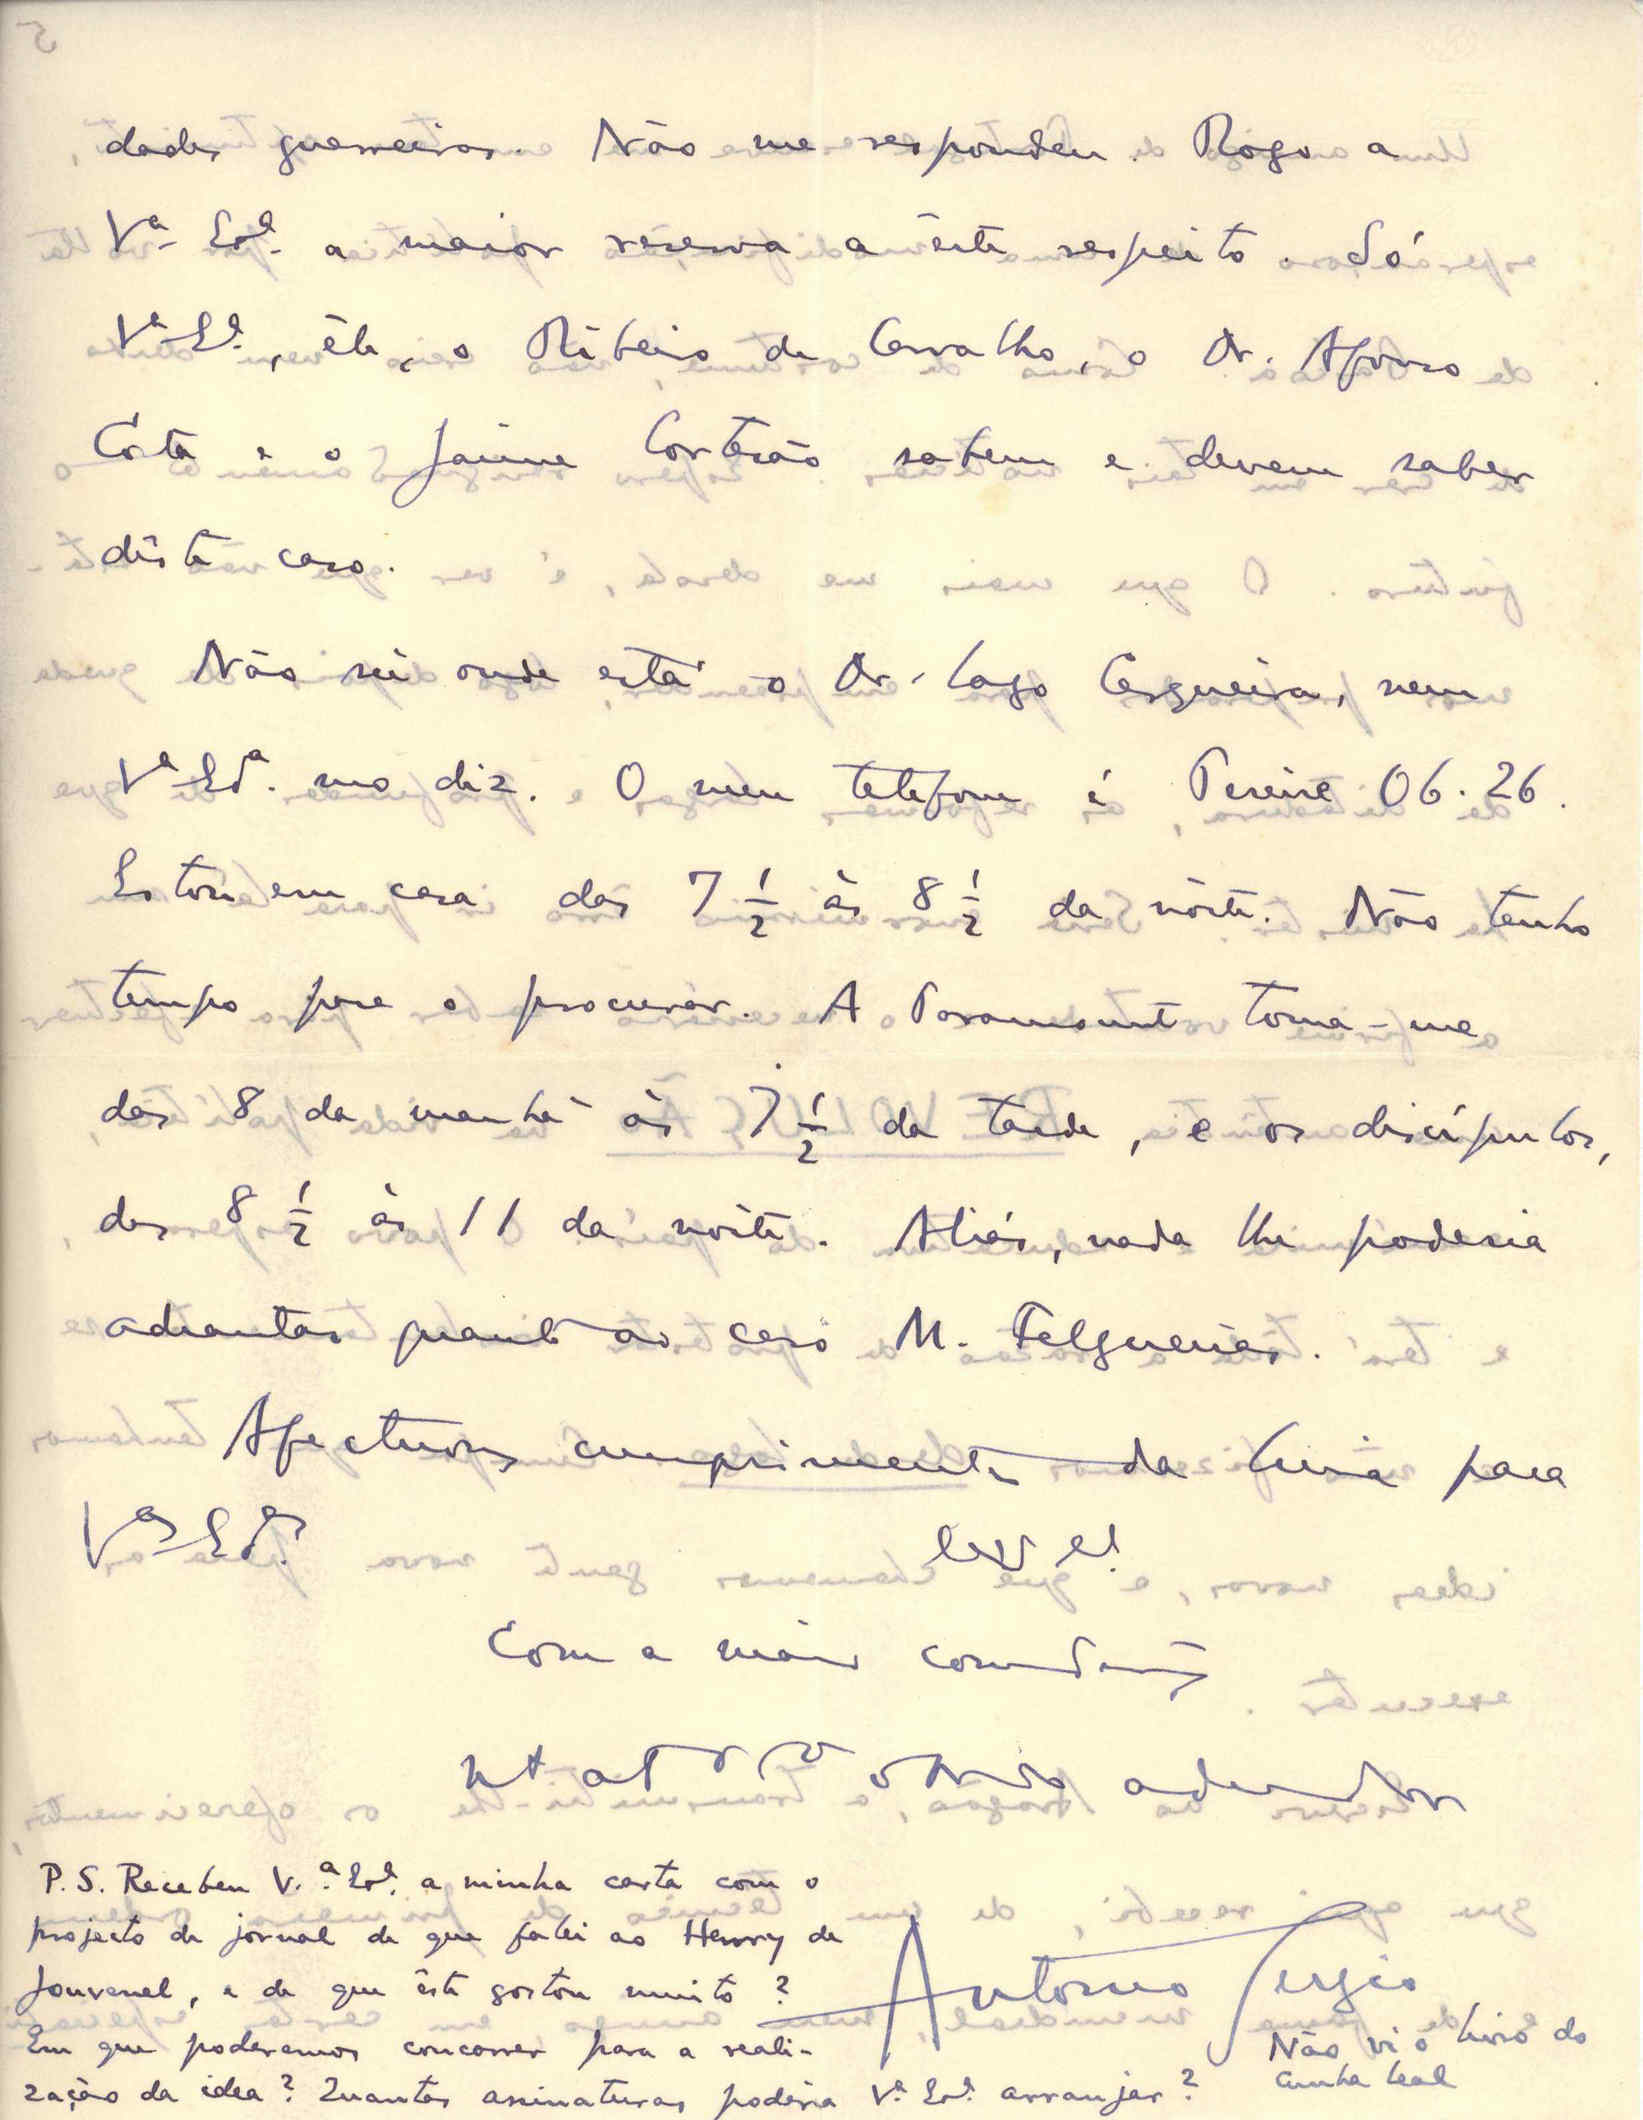 dades guerreiras. Não me respondeu. Rogo a
V.ª Ex.ª a maior reserva a êste respeito. Só
V.ª Ex.ª, êle, o Ribeiro de Carvalho, o Dr. Afonso
Costa e o Jaime Cortesão sabem e devem saber
dêste caso.
Não sei onde está o Dr. Lago Cerqueira, nem
V.ª Ex.ª mo diz. O meu telefone é Pereire 06.26.
Estou em casa das 7 1/2 às 8 1/2 da nòite. Não tenho
tempo para o procurar. A Paramount toma-me
das 8 da manhã às 7 1/2 da tarde, e os discípulos,
das 8 1/2 às 11 da nòite. Aliás, nada lhe poderia
adiantar quanto ao caso M. Felgueiras.
Afectuosos cumprimentos da Luísa para
V.as Ex.as
Com a maior consideração
obrigado admirador
António Sérgio
P.S. Recebeu V.ª Ex.ª a minha carta com o
projecto de jornal de que falei ao Henry de
Jouvenel, e de que êste gostou muito?
Em que poderemos concorrer para a reali-
zação da idea? Quantas assinaturas poderia V.ª Ex.ª arranjar?
Não vi o livro do
Cunha Leal
5